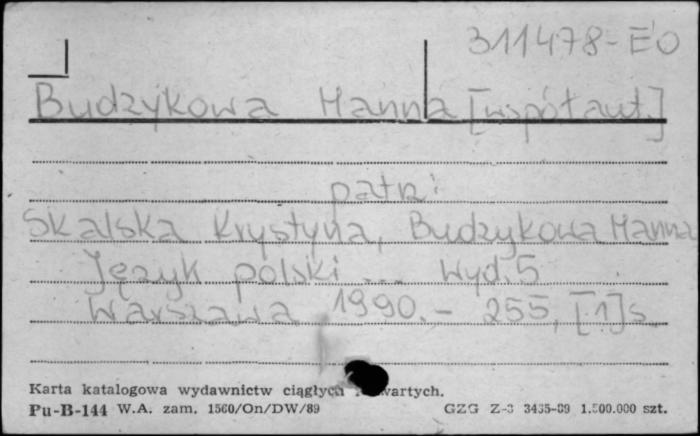 311478-EO
Budzykowa Hanna [współaut.]
patrz:
Skalska Krystyna, Budzykowa Hanna
Język polski ... Wyd. 5
Warszawa 1990. - 255, [1] s.
Karta katalogowa wydawnictw ciągłych i zwartych.
Pu-B-144 W.A. zam. 1560/On/DW/89 GZG Z-3 3435-89 1.500.000 szt.